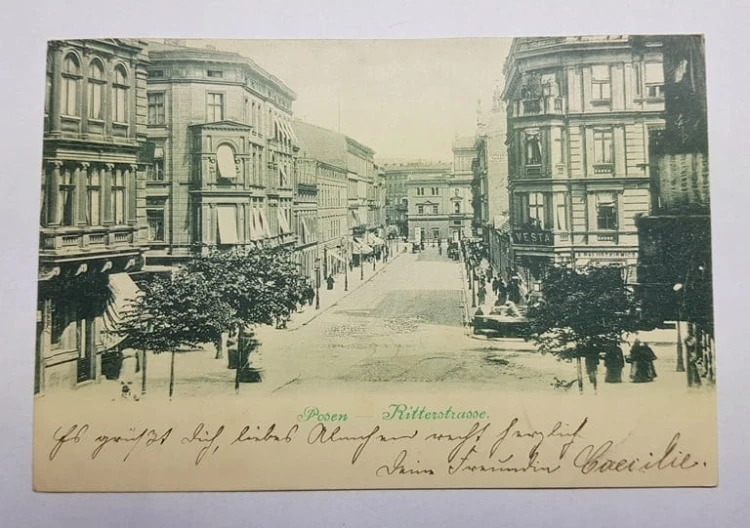 VESTA
Posen — Ritterstrasse.
Es grüßt Dich, liebes Almchen recht herzlich
Deine Freundin Caecilie.